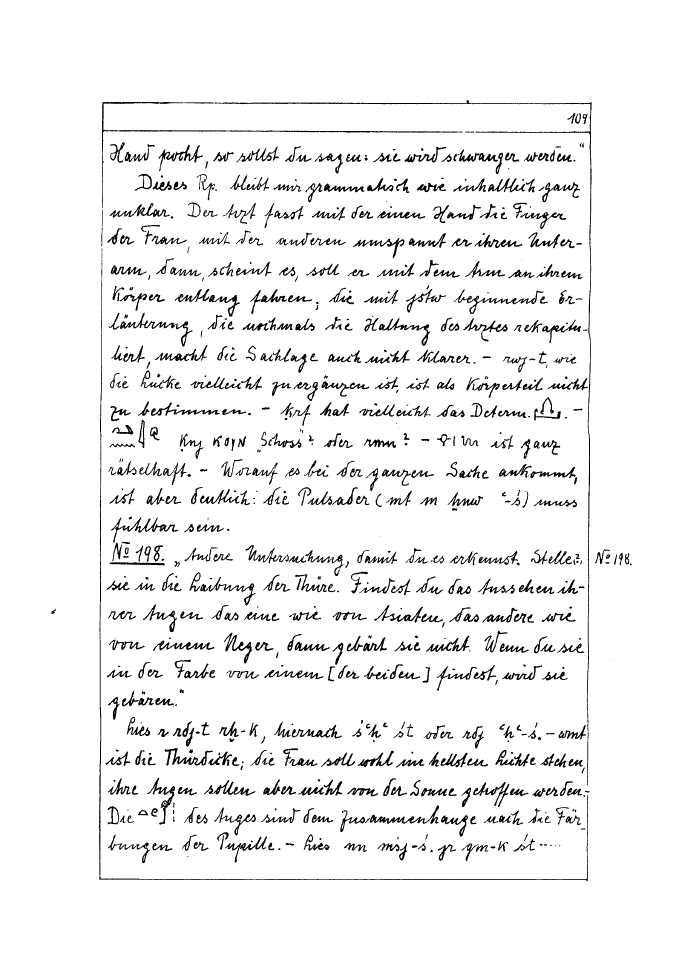 109
Hand pocht, so sollst du sagen: sie wird schwanger werden."
Dieses Rp. bleibt mir grammatisch wie inhaltlich ganz
unklar. Der Arzt fasst mit der einen Hand die Finger
der Frau, mit der anderen umspannt er ihren Unter-
arm, dann, scheint es, soll er mit dem Arm an ihrem
Körper entlang fahren; die mit jśtw beginnende Er-
läuterung, die nochmals die Haltung des Arztes rekapitu-
liert, macht die Sachlage auch nicht klarer. – rwj-t, wie
die Lücke vielleicht zu ergänzen ist, ist als Körperteil nicht
zu bestimmen. – ḳrf hat vielleicht das Determ. –
ḳnj ⲕⲟⲩⲛ „Schoss"? oder rmn? – ist ganz
rätselhaft. – Worauf es bei der ganzen Sache ankommt,
ist aber deutlich: die Pulsader (mt m ẖnw ʿ-ś) muss
fühlbar sein.
No 198. „Andere Untersuchung, damit du es erkennst. Stelle?, No 198.
sie in die Laibung der Thüre. Findest du das Aussehen ih-
rer Augen das eine wie von Asiaten, das andere wie
von einem Neger, dann gebärt sie nicht. Wenn du sie
in der Farbe von einem [der beiden] findest, wird sie
gebären."
Lies r rdj-t rḫ-k, hiernach śʿḥʿ śt oder rdj ʿḥʿ-ś. – wmt
ist die Thürdicke; die Frau soll wohl im hellsten Lichte stehen,
ihre Augen sollen aber nicht von der Sonne getroffen werden.
Die des Auges sind dem Zusammenhange nach die Fär-
bungen der Pupille. – Lies nn mśj-ś. jr gm-k śt .....